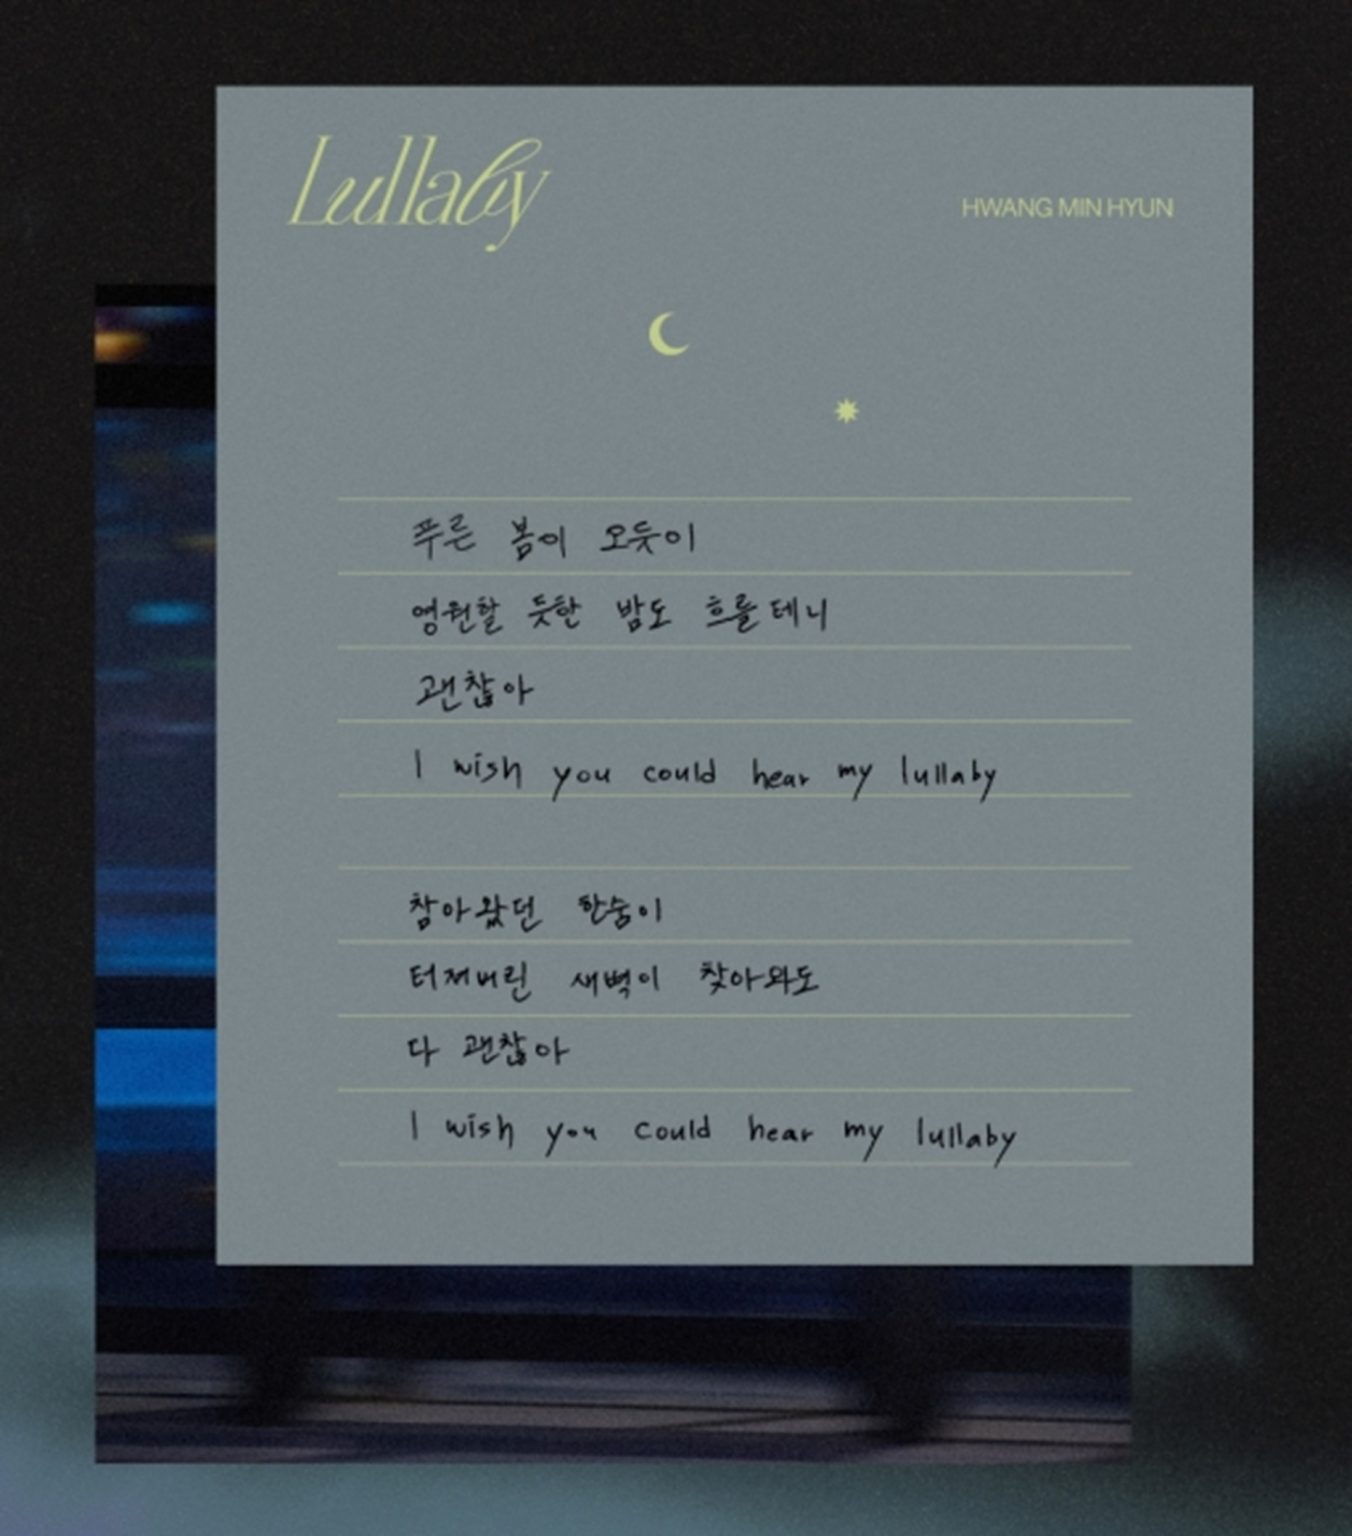 Lullaby
HWANG MIN HYUN
푸른 봄이 오듯이
영원할 듯한 밤도 흐를테니
괜찮아
I wish you could hear my lullaby
참아왔던 한숨이
터져버린 새벽이 찾아와도
다 괜찮아
I wish you could hear my lullaby